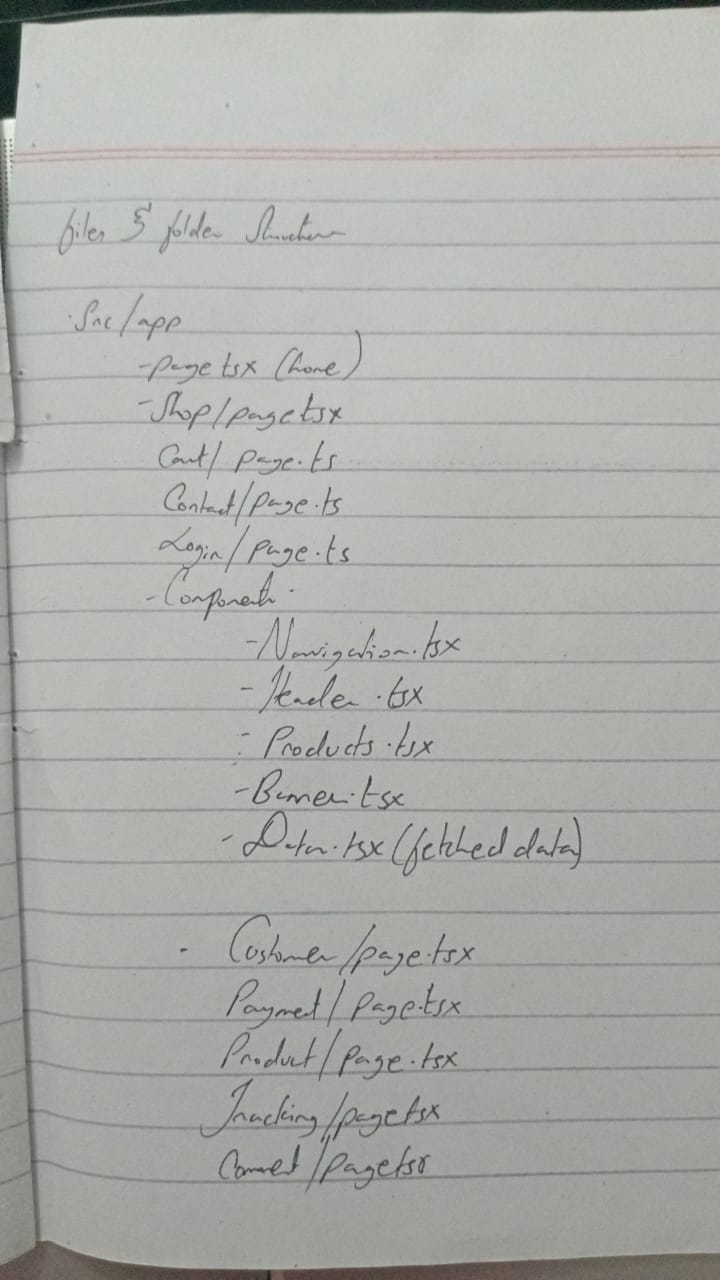 files & folder Structure
. Src/app
- page tsx (home)
- Shop/page tsx
Cart/ page.ts
Contact/page.ts
Login/page.ts
- Components
- Navigation.tsx
- Header.tsx
- Products.tsx
- Banner.tsx
- Data.tsx (fetched data)
. Customer/page.tsx
Payment/page.tsx
Product/page.tsx
Tracking/pagetsx
/pagetsx